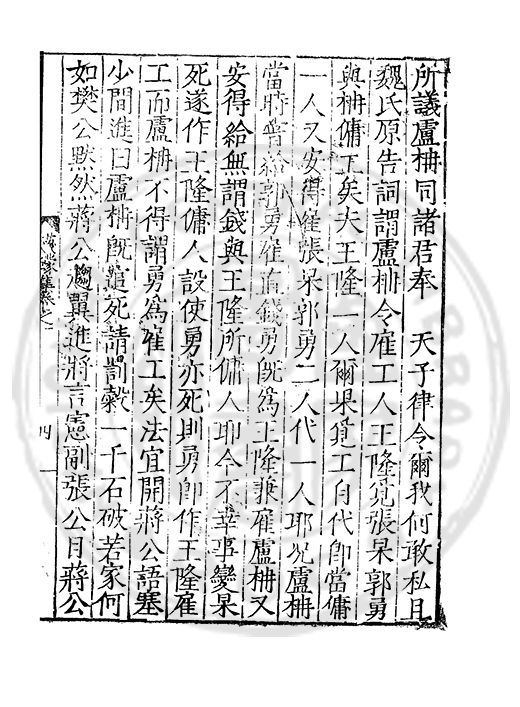 所議盧柟同諸君奉　天子律令爾我何敢私且
魏氏原告詞謂盧柟令雇工人王隆覓張杲郭勇
與柟傭工矣夫王隆一人爾杲覓工自代卽當傭
一人又安得雇張杲郭勇二人代一人耶況盧柟
當時曾給郭勇雇直錢勇旣爲王隆兼雇盧柟又
安得給無謂錢與王隆所傭人耶今不幸事變杲
死遂作王隆傭人設使勇亦死則勇卽作王隆雇
工而盧柟不得謂勇爲雇工矣法宜開蔣公語塞
少間進曰盧柟旣寃死請罰穀一千石破若家何
如樊公默然蔣公趨翼進將言憲副張公目蔣公
集卷之
四